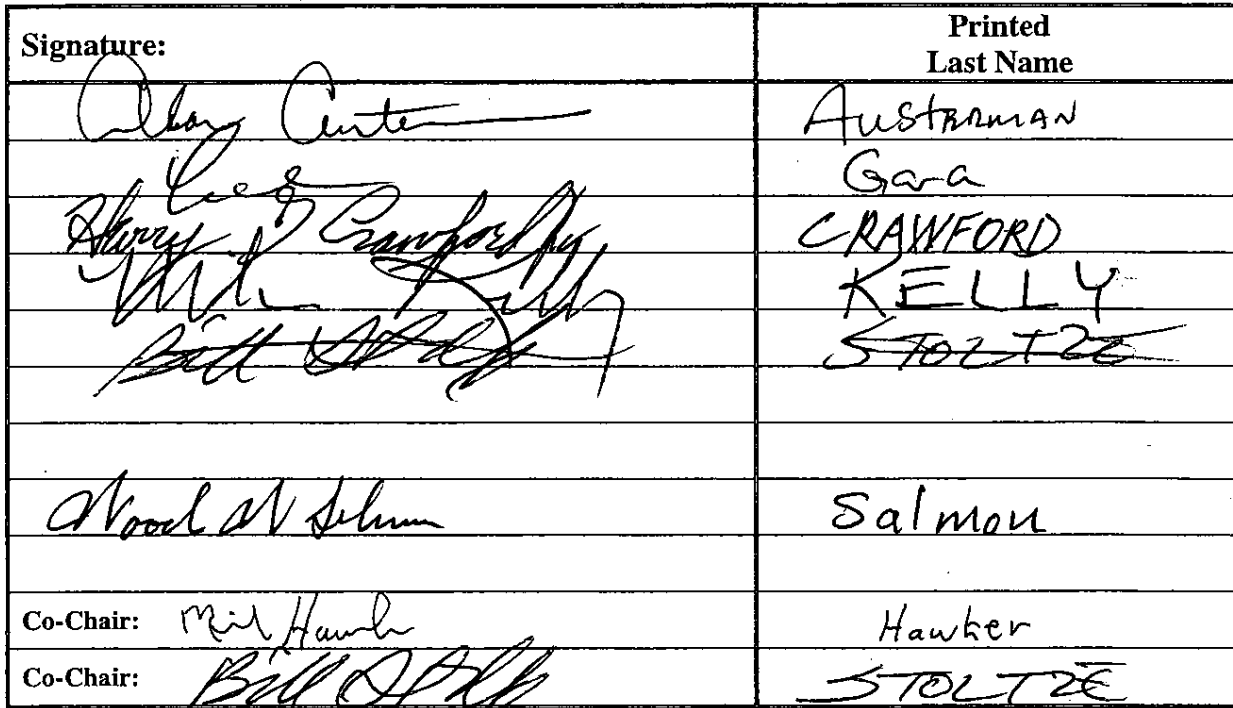 Signature: Printed
Last Name
AUSTERMAN
Gara
Harry Crawford Jr CRAWFORD
KELLY
Bill Stoltze STOLTZE
Salmon
Co-Chair: Mike Hawker Hawker
Co-Chair: Bill Stoltze STOLTZE